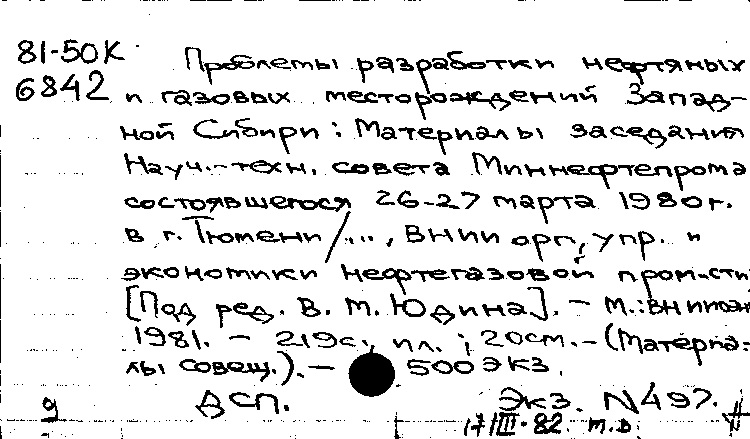 81-50К Проблемы разработки нефтяных
6842 и газовых месторождений Запад-
ной Сибири : Материалы заседания
Науч.-техн. совета Миннефтепрома
состоявшегося 26-27 марта 1980г.
в г. Тюмени/..., ВНИИ орг., упр. и
экономики нефтегазовой пром-сти
[Под ред. В. М. Юдина]. - М.: ВНИИОЭН
1981. - 219с., ил. ; 20см. - (Материа-
лы совещ.). - 500 экз.
9 ДСП. Экз. N497.
17/III-82 т.в